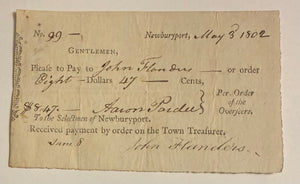 No. 99 — Newburyport, May 3 1802
GENTLEMEN,
Please to Pay to John Flanders — or order
Eight — Dollars 47 — Cents,
Per Order
of the
Overseers.
$8:47— Aaron Pardee
To the Selectmen of Newburyport.
Received payment by order on the Town Treasurer,
John Flanders.